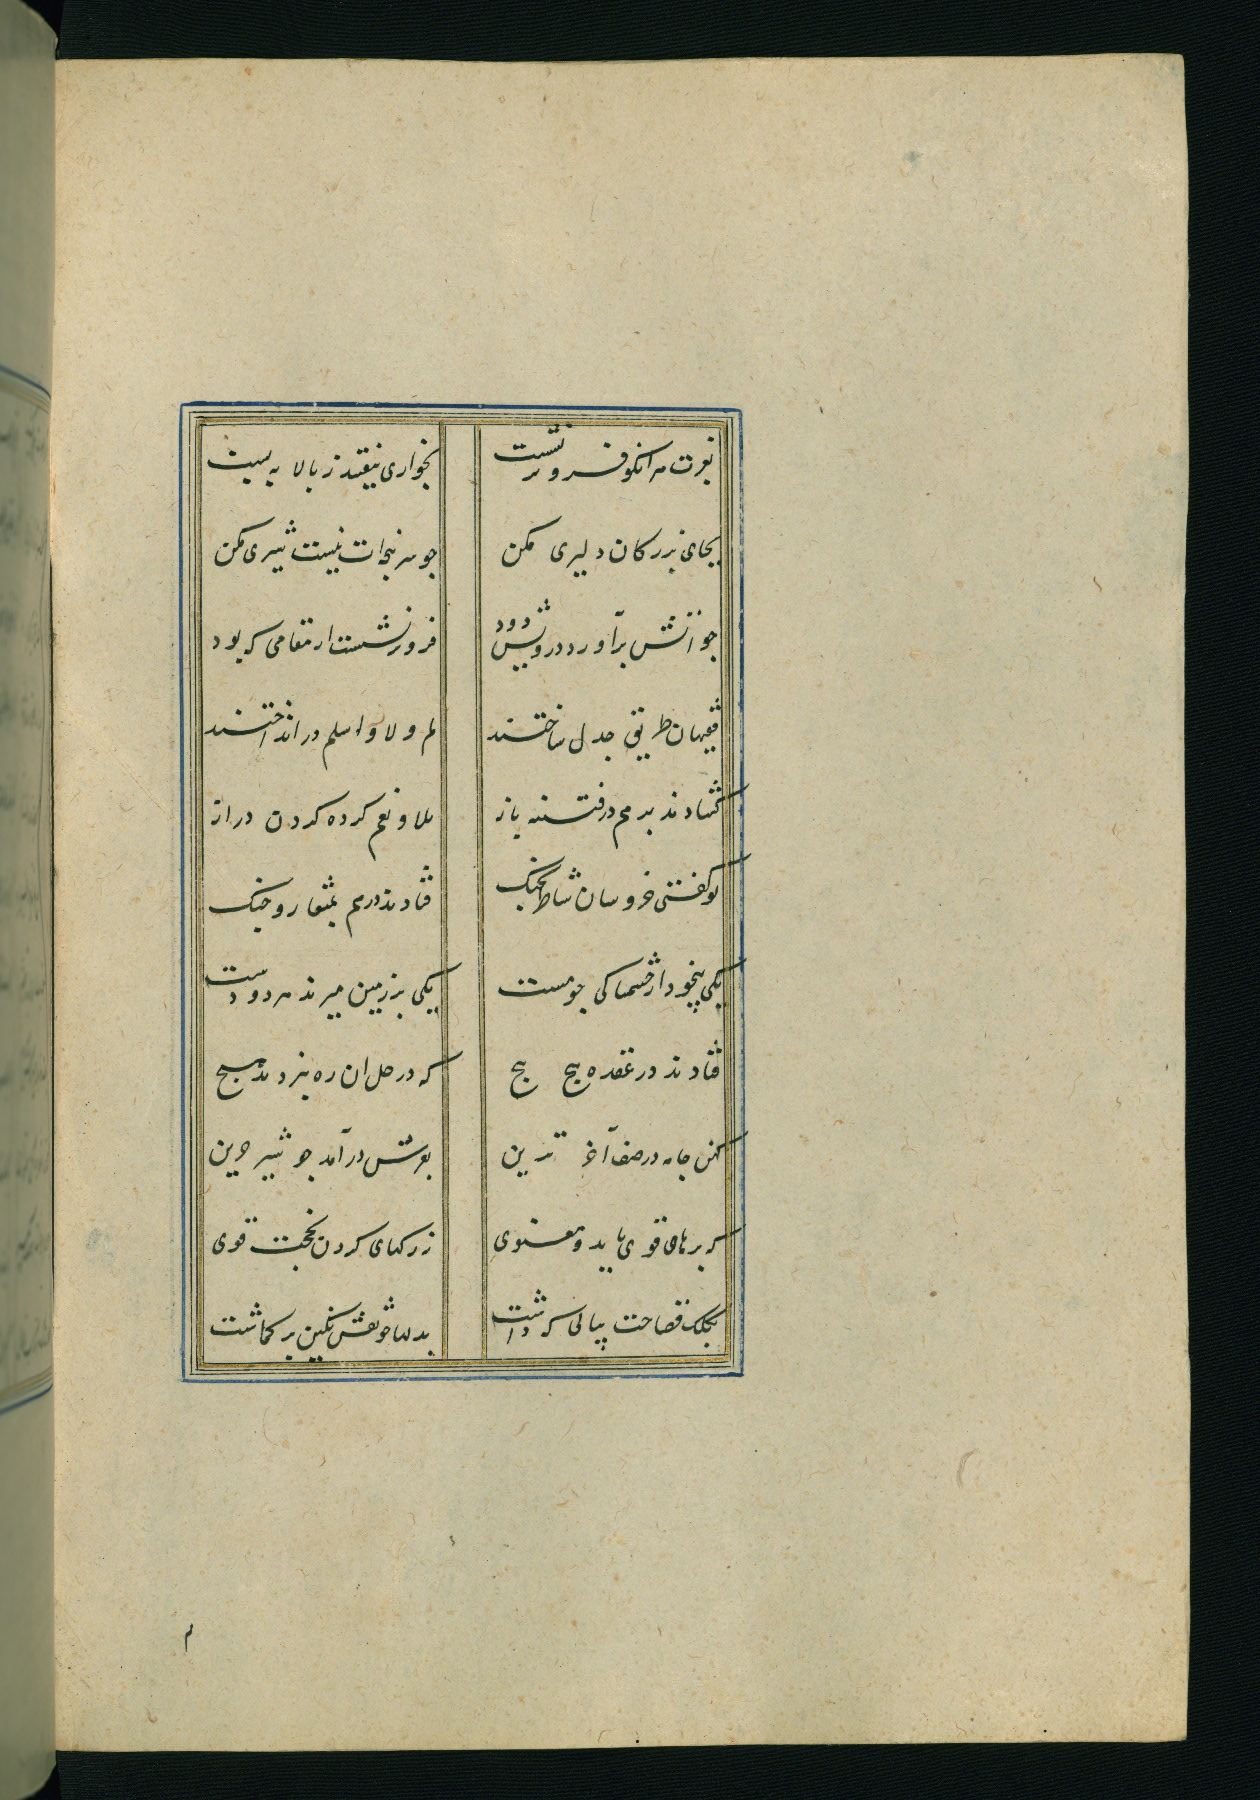 بعزت هر آنکو فروتر نشست بخواری نیفتد ز بالا به پست
بجای بزرکان دلیری مکن جو سر پنجه ات نیست شیری مکن
جو آتش برآورد درویش دود فروتر نشست از مقامی که بود
فقیهان طریق جدل ساختند لم و لا و اسلم در انداختند
کشادند بر هم در فتنه باز بلا و نعم کرده کردن دراز
تو کفتی خروسان شاطر بجنک فتادند در هم بمنقار و جنک
یکی بیخود از خشمناکی جو مست یکی بر زمین میزند هر دو دست
فتادند در عقده پیج پیج که در حل ان ره نبردند هیج
کهن جامه در صف آخر ترین بغرش درآمد جو شیر عرین
که برهان قوی باید و معنوی نه رکهای کردن بحجت قوی
بکلک فصاحت بیانی که داشت بدلها جو نقش نکین بر کماشت